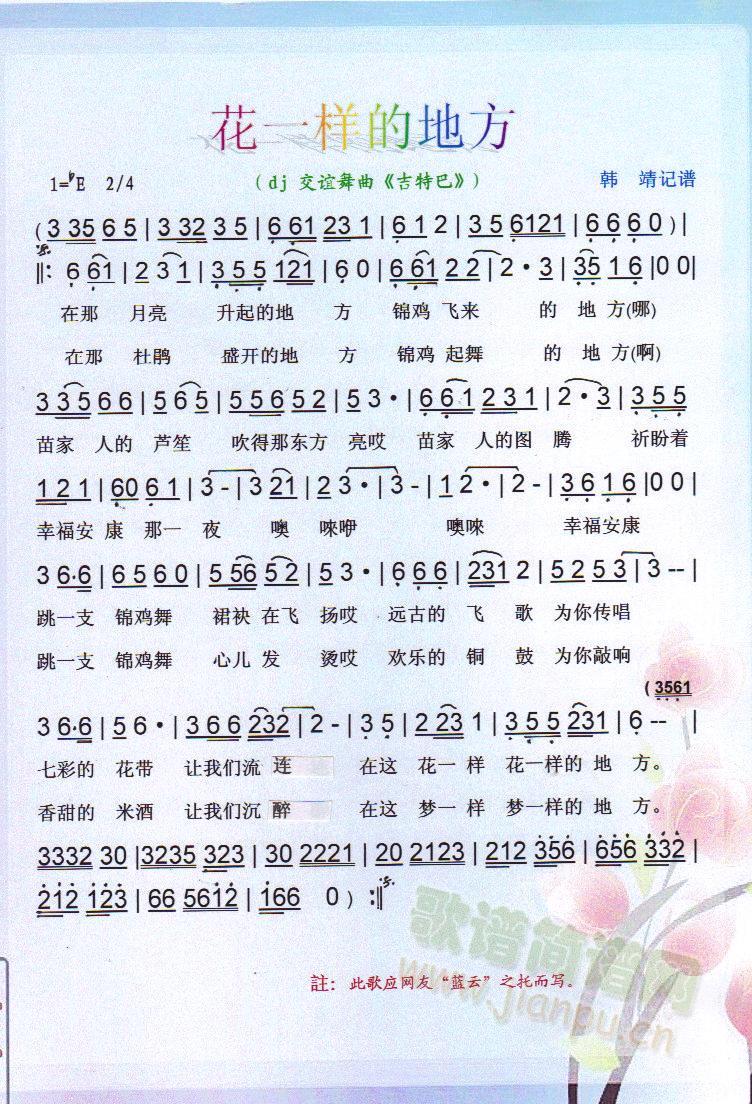 花一样的地方
1=♭E 2/4 （dj 交谊舞曲《吉特巴》） 韩 靖记谱
( 3 35 6 5 | 3 32 3 5 | 6 61 23 1 | 6 1 2 | 3 5 6121 | 6 6 6 0 ) |
‖: 6 61 | 2 3 1 | 3 5 5 121 | 6 0 | 6 61 2 2 | 2 · 3 | 35 1 6 |0 0|
在那 月亮 升起的地 方 锦鸡 飞来 的 地 方(哪)
在那 杜鹃 盛开的地 方 锦鸡 起舞 的 地 方(啊)
3 3 5 6 6 | 5 6 5 | 5 5 6 5 2 | 5 3 · | 6 6 1 2 3 1 | 2 · 3 | 3 5 5
苗家 人的 芦笙 吹得那东方 亮哎 苗家 人的图 腾 祈盼着
1 2 1 | 60 6 1 | 3 - | 3 21 | 2 3 · | 3 - | 1 2 · | 2 - | 3 6 1 6 |0 0 |
幸福安 康 那一 夜 噢 唻咿 噢唻 幸福安康
3 6·6 | 6 5 6 0 | 5 56 5 2 | 5 3 · | 6 6 6 | 231 2 | 5 2 5 3 | 3 -- |
跳一支 锦鸡舞 裙袂 在飞 扬哎 远古的 飞 歌 为你传唱
跳一支 锦鸡舞 心儿 发 烫哎 欢乐的 铜 鼓 为你敲响
( 3561
3 6·6 | 5 6 · | 3 6 6 232 | 2 - | 3 5 | 2 23 1 | 3 5 5 231 | 6 -- |
七彩的 花带 让我们流 连 在这 花一 样 花一样的 地 方。
香甜的 米酒 让我们沉 醉 在这 梦一 样 梦一样的 地 方。
3332 30 |3235 323 | 30 2221 | 20 2123 | 212 356 | 656 332 |
212 123 | 66 5612 | 166 0 ) :‖
歌谱简谱网
www.jianpu.cn
註：此歌应网友“蓝云”之托而写。